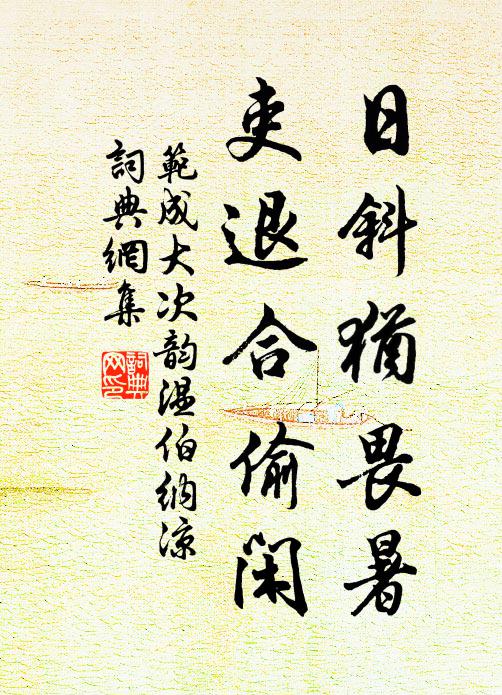 日斜猶畏暑
吏退合偷閑
範成大次韵温伯納凉
詞典網集
詞典
网印